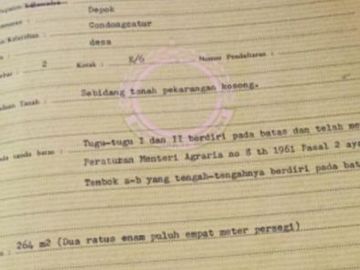 Depok
Condongcatur
desa
2 Kotak : R/6 Nomor Pendaftaran :
Tanah : Sebidang tanah pekarangan kosong.
tanda batas : Tugu-tugu I dan II berdiri pada batas dan telah
Peraturan Menteri Agraria no 8 th 1961 Pasal 2
Tembok a-b yang tengah-tengahnya berdiri pada
: 264 m2 (Dua ratus enam puluh empat meter persegi)